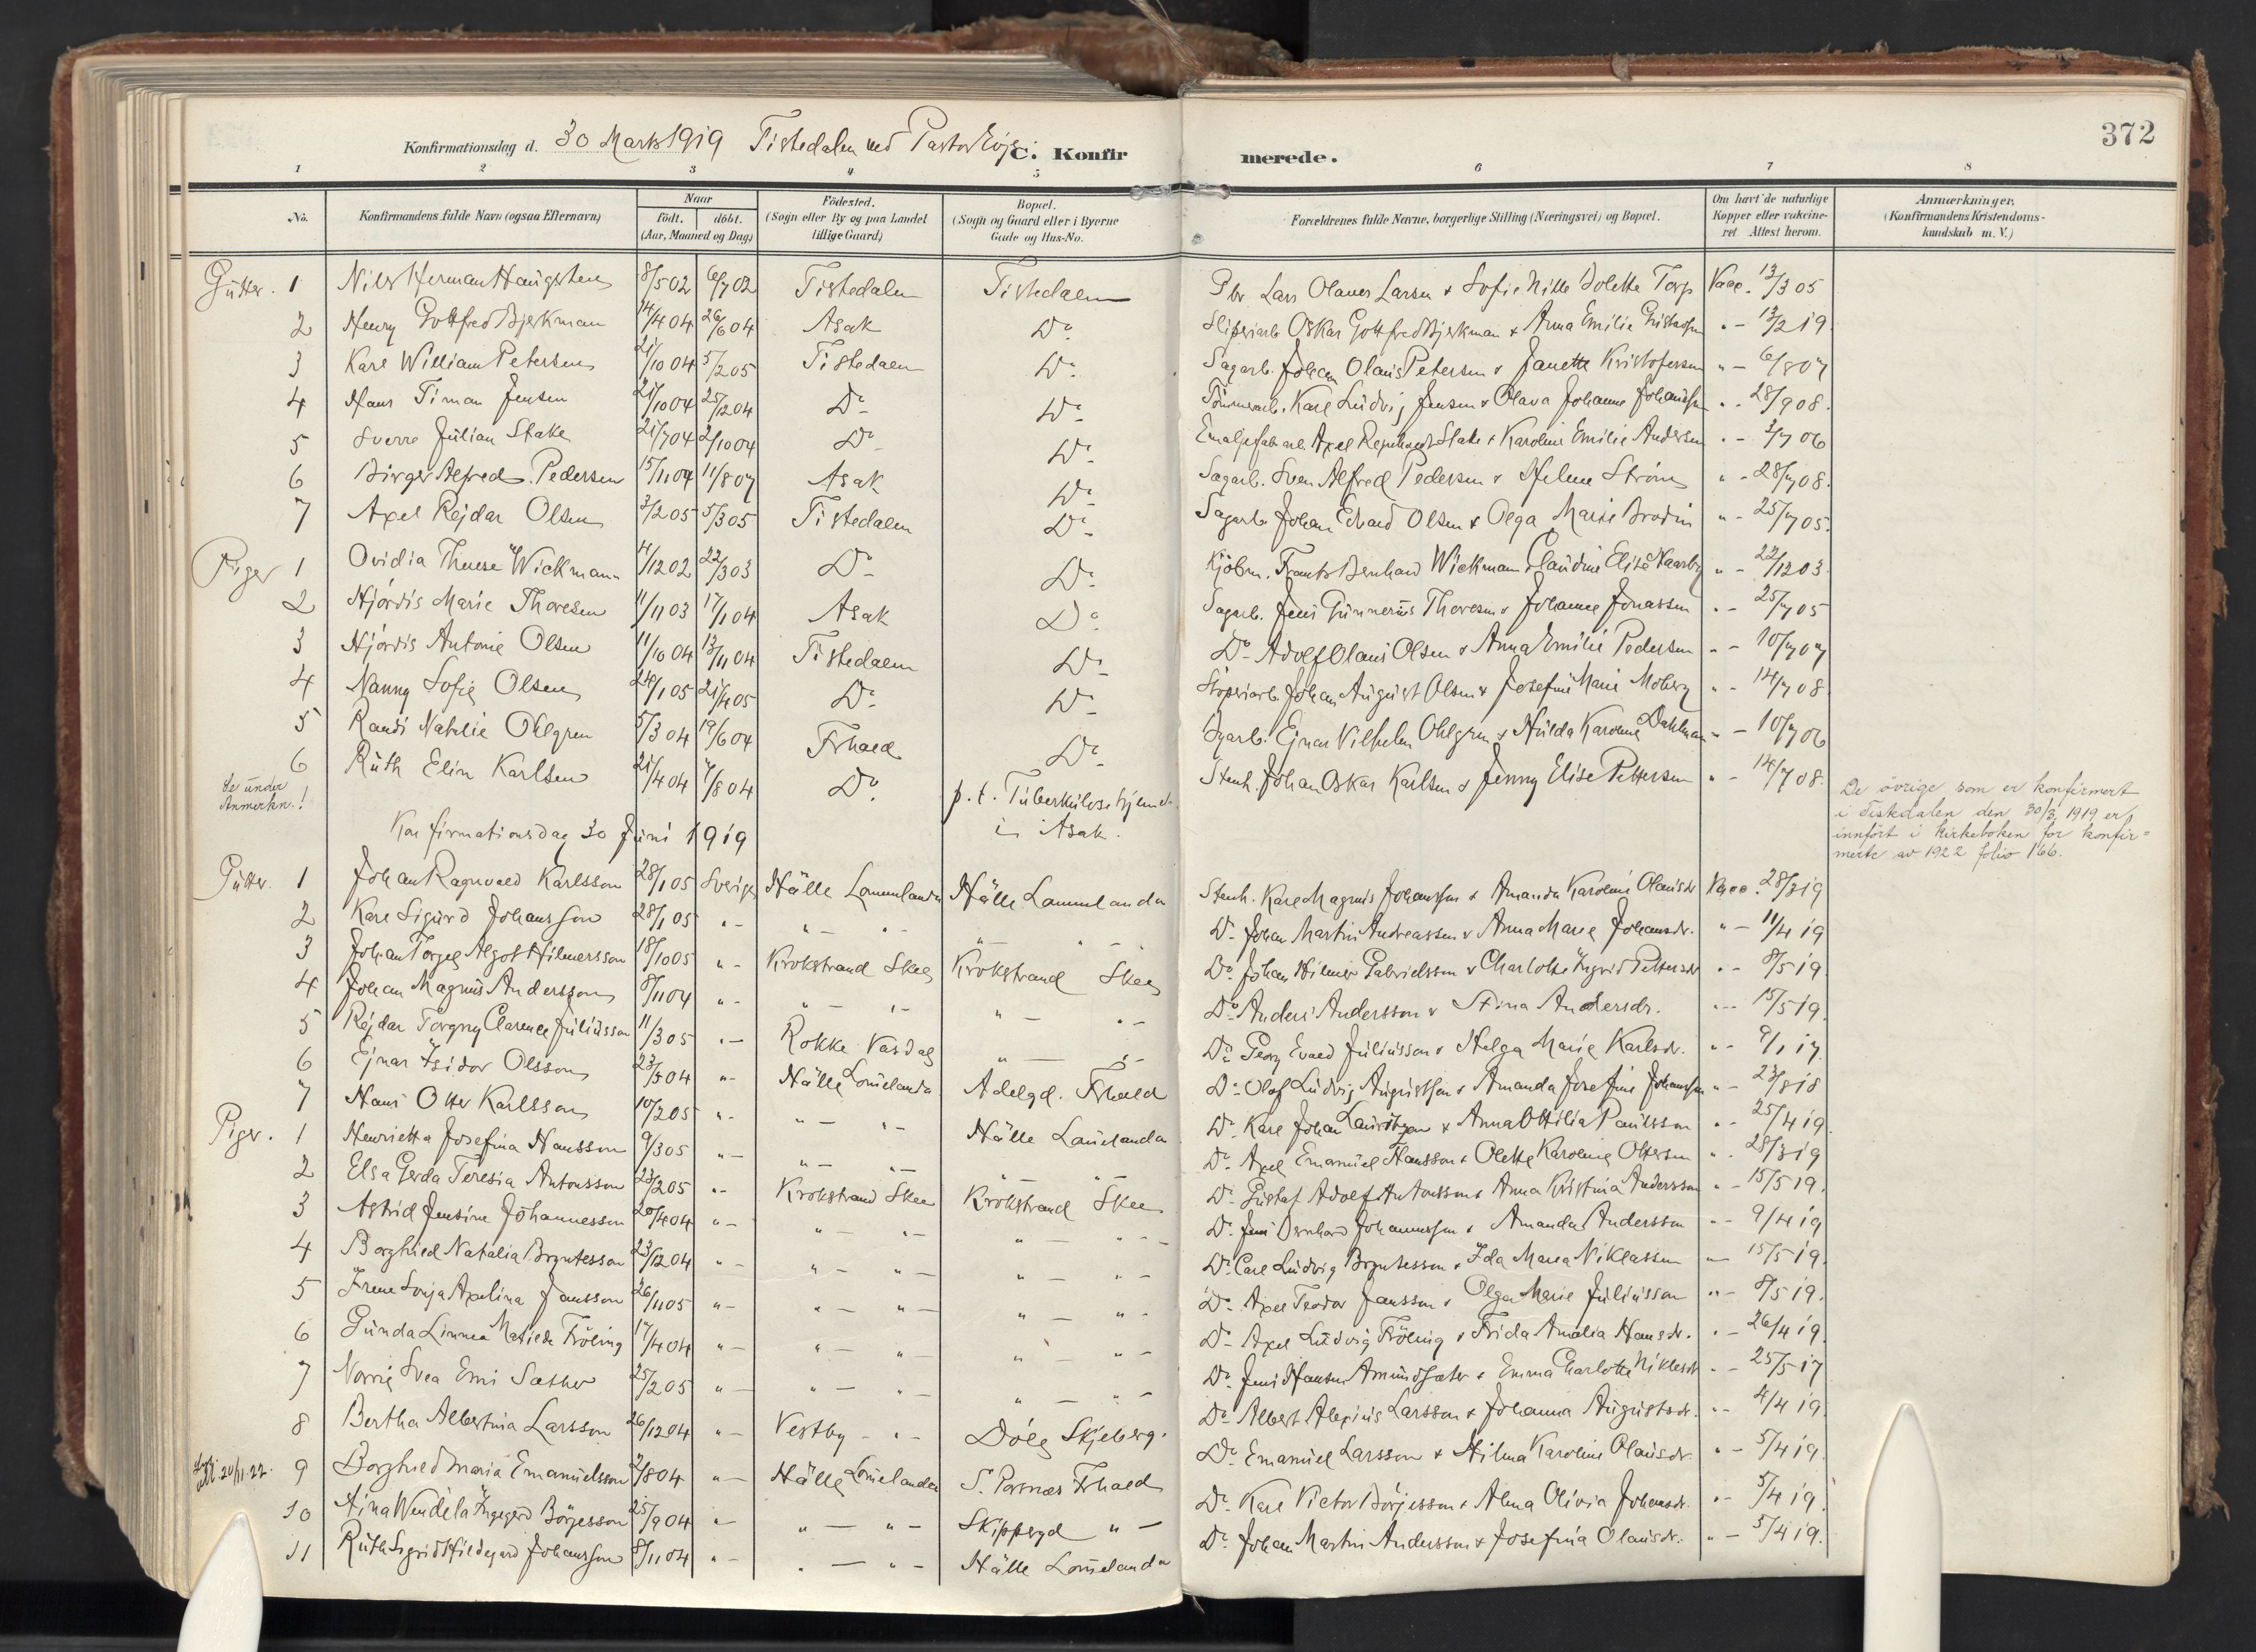 372
Konfirmationsdag d. 30 Marts 1919 Tistedalen ved Pastor
C. Konfirmerede.
1 2 3 4 5 6 7 8
No. Konfirmandens fulde Navn (ogsaa Efternavn) Naar födt. döbt. (Aar, Maaned og Dag) Födested. (Sogn eller By og paa Landet tillige Gaard) Bopæl. (Sogn og Gaard eller i Byerne Gade og Hus-No. Forældrenes fulde Navne, borgerlige Stilling (Næringsvei) og Bopæl. Om havt de naturlige Kopper eller vakcineret Attest herom. Anmærkninger. (Konfirmandens Kristendomskundskab m. V.)
Gutter. 1 Nils Herman Haugsten 8/5 02 6/7 02 Tistedalen Tistedalen Lars Olaues Larsen & Sofie Mille Bolette Torp Vacc. 13/3 05
2 Henry Gottfred Bjerkman 14/4 04 26/6 04 Asak Do Sliperiarb. Oskar Gottfred Bjerkman & Anna Emilie Gustavsen " - 13/2 19
3 Karl William Petersen 21/10 04 5/2 05 Tistedalen Do Sagarb. Johan Olaus Petersen & Janette Kristofersen " - 6/8 07
4 Hans Timan Jensen 21/10 04 25/12 04 Do Do Tömmerarb. Karl Ludvij Jensen & Olava Johanne Johansen " - 28/9 08.
5 Sverre Julian Stake 21/7 04 2/10 04 Do Do Emaljefab. arb. Axel Reinhardt Stake & Karoline Emilie Andersen " - 3/7 06
6 Birger Alfred Pedersen 15/11 04 11/8 07 Asak Do Sagarb. Sven Alfred Pedersen & Helene Ström " - 28/7 08.
7 Axel Rejdar Olsen 3/2 05 5/3 05 Tistedalen Do Sagarb. Johan Edvard Olsen & Olga Marie Brodin " - 25/7 05.
Piger 1 Ovidia Therese Wickmann 4/12 02 22/3 03 Do Do Kjöbm. Frants Bernhard Wickmann Claudine Elise Naarby " - 22/12 03.
2 Hjördis Marie Thoresen 11/11 03 17/1 04 Asak Do Sagarb. Jens Gunnerius Thoresen & Johanne Jonassen " - 25/7 05
3 Hjördis Antonie Olsen 11/10 04 13/11 04 Tistedalen Do Do Adolf Olaus Olsen & Anna Emilie Pedersen " - 10/7 07
4 Nanny Sofie Olsen 24/1 05 21/4 05 Do Do Stöperiarb. Johan August Olsen & Josefine Marie Moberg " - 14/7 08
5 Randi Natalie Ohlgren 5/3 04 19/6 04 Frhald Do Ejnar Vilhelm Ohlgren & Hulda Karoline Dahlman " - 10/7 06
6 Ruth Elin Karlsen 21/4 04 7/8 04 Do p.t. Tuberkulosehjemet i Asak. Stenh. Johan Oskar Karlsen & Jenny Elise Pettersen " - 14/7 08.
Se under Anmerkn.!
De övrige som er konfirmert
i Tistedalen den 30/3 1919 er
innfört i kirkeboken for konfir=
merte av 1922 folio 166.
Konfirmationsdag 30 Juni 1919
Gutter. 1 Johan Ragnvald Karlsson 28/1 05 Sverige Hälle Lommelanda Hälle Lommelanda Stenh. Karl Magnus Johansson & Amanda Karoline Olausdr Vacc. 28/3 19
2 Karl Sigurd Johansson 28/1 05 " - " - " - " - " - Do Johan Martin Andreassen & Anna Maria Johansdr. " - 11/4 19
3 Johan Torgny Algot Hilmersson 18/10 05 " - Krokstrand Skee Krokstrand Skee Do Johan Hilmer Gabrielsson & Charlotte Ingrid Pettersdr " - 8/5 19
4 Johan Magnus Andersson 8/11 04 " - " - " - " - " - Do Anders Andersson & Stina Andersdr. " - 15/5 19.
5 Rejdar Torgny Clarence Juliusson 11/3 05 " - Rokke Vasdal " - " - Do Georg Evald Juliusson & Helga Marie Karlsdr. " - 9/1 17
6 Ejnar Isidor Olsson 23/5 04 " - Hälle Lomelanda Adelgd. Frhald Do Olaf Ludvig Augustson & Amanda Josefine Johansson " - 23/8 18
7 Hans Otto Karlsson 10/2 05 " - " - " - Hälle Lomelanda Do Karl Johan Lauritzen & Anna Ottilia Paulsson " - 25/4 19.
Piger. 1 Henrietta Josefina Hansson 9/3 05 " - " - " - " - " - Do Axel Emanuel Hansson & Olette Karoline Ottersen " - 28/3 19
2 Elsa Gerda Teresia Antonsson 23/2 05 " - Krokstrand Skee Krokstrand Skee Do Gustaf Adolf Antonsson & Anna Kristina Andersson " - 15/5 19.
3 Astrid Jensine Johannesson 20/4 04 " - " - " - " - " - Do Jens Bernhard Johannesson & Amanda Andersson " - 9/4 19
4 Borghild Natalia Bryntesson 23/12 04 " - " - " - " - " - Do Carl Ludvig Bryntesson & Ida Maria Niklasson " - 15/5 19.
5 Irene Sonja Axelina Jansson 26/11 05 " - " - " - " - " - Do Axel Teodor Jansson & Olga Marie Juliusson " - 8/5 19.
6 Gunda Linnea Matilda Fröling 17/4 04 " - " - " - " - " - Do Axel Ludvig Fröling & Frida Amalia Hansdr. " - 26/4 19.
7 Norrig Svea Emi Sæther 25/2 05 " - " - " - " - " - Do Jens Hansen Amundsæter & Emma Charlotte Niklasdr " - 25/5 17
8 Bertha Albertina Larsson 26/12 04 " - Vestby - " - Döle Skjeberg. Do Albert Alexius Larsson & Johanna Augustsdr. " - 4/4 19.
20/11-22. 9 Borghild Maria Emanuelsson 2/8 04 " - Hälle Lomelanda S. Frhald Do Emanuel Larsson & Hilma Karoline Olausdr. " - 5/4 19.
10 Aina Wendela Ingegerd Börjesson 25/9 04 " - " - " - Skippergd " - Do Karl Victor Börjesson & Alma Olivia Johansdr. " - 5/4 19.
11 Ruth Sigrid Hildegard Johansson 8/11 04 " - " - " - Hälle Lomelanda Do Johan Martin Andersson & Josefina Olausdr. " - 5/4 19.